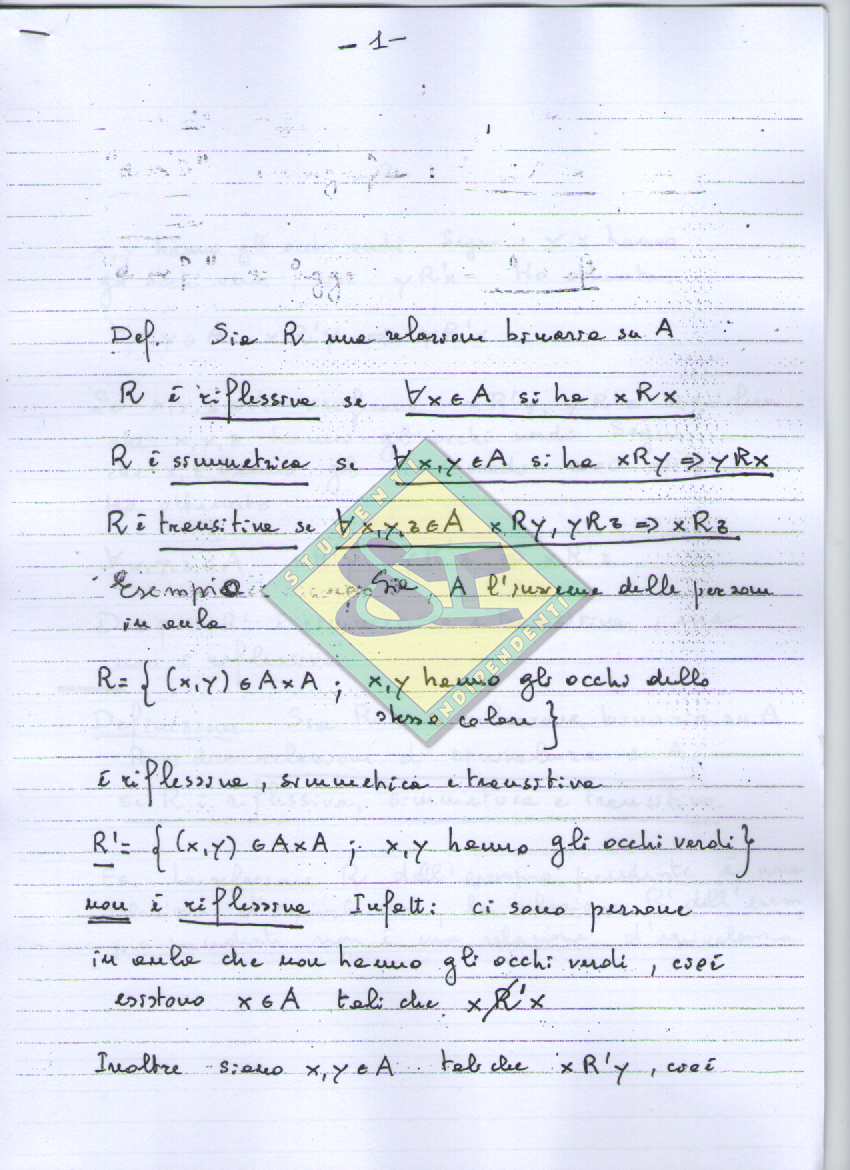 - 1 -
Def Sia R una relazione binaria su A
R è riflessiva se ∀x∈A si ha xRx
R è simmetrica se ∀x,y∈A si ha xRy ⇒ yRx
R è transitiva se ∀x,y,z∈A xRy, yRz ⇒ xRz
STUDENTI
SI
INDIPENDENTI
Esempio Sia A l'insieme delle persone
in aula
R = { (x,y) ∈ A×A ; x,y hanno gli occhi dello
stesso colore }
è riflessiva, simmetrica e transitiva
R' = { (x,y) ∈ A×A ; x,y hanno gli occhi verdi }
non è riflessiva Infatti: ci sono persone
in aula che non hanno gli occhi verdi, cioè
esistono x∈A tali che x R̸' x
Inoltre siano x,y∈A tali che xR'y, cioè